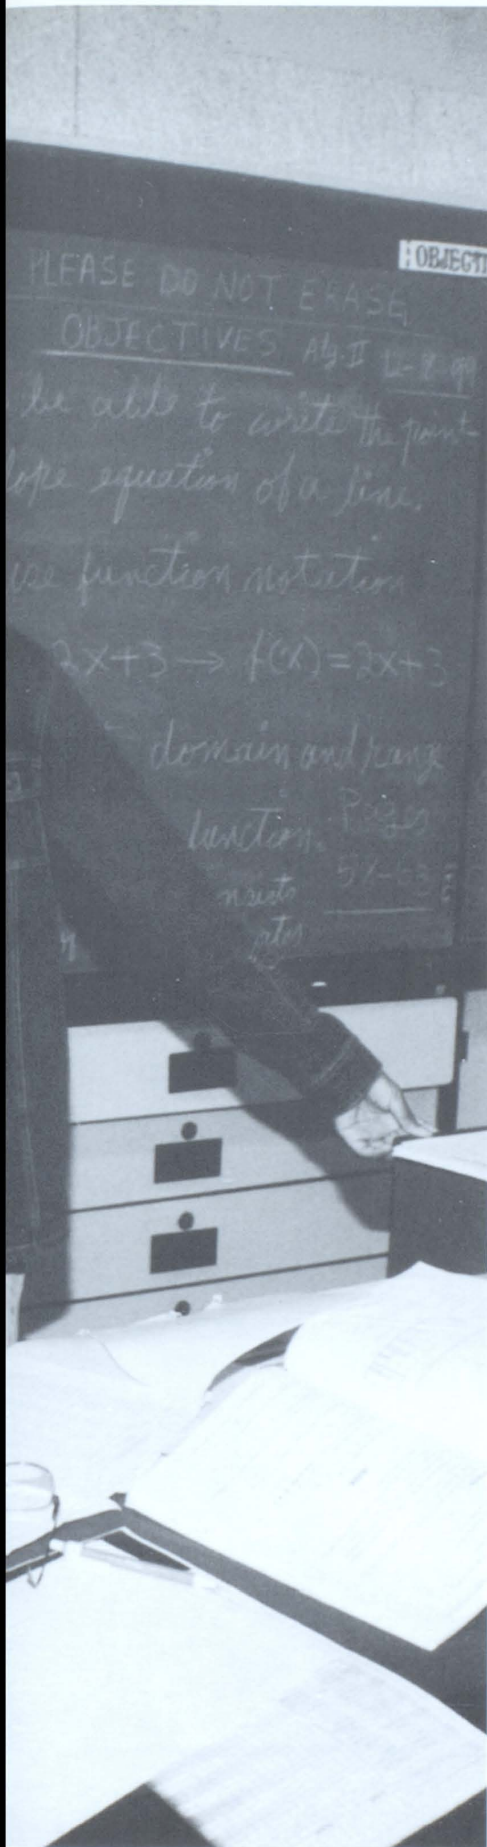 OBJECTI
PLEASE DO NOT ERASE
OBJECTIVES Alg. II 12-8-99
be able to write the point-
lope equation of a line.
use function notation
2x+3 → f(x)=2x+3
domain and range
function. Pages
nsists